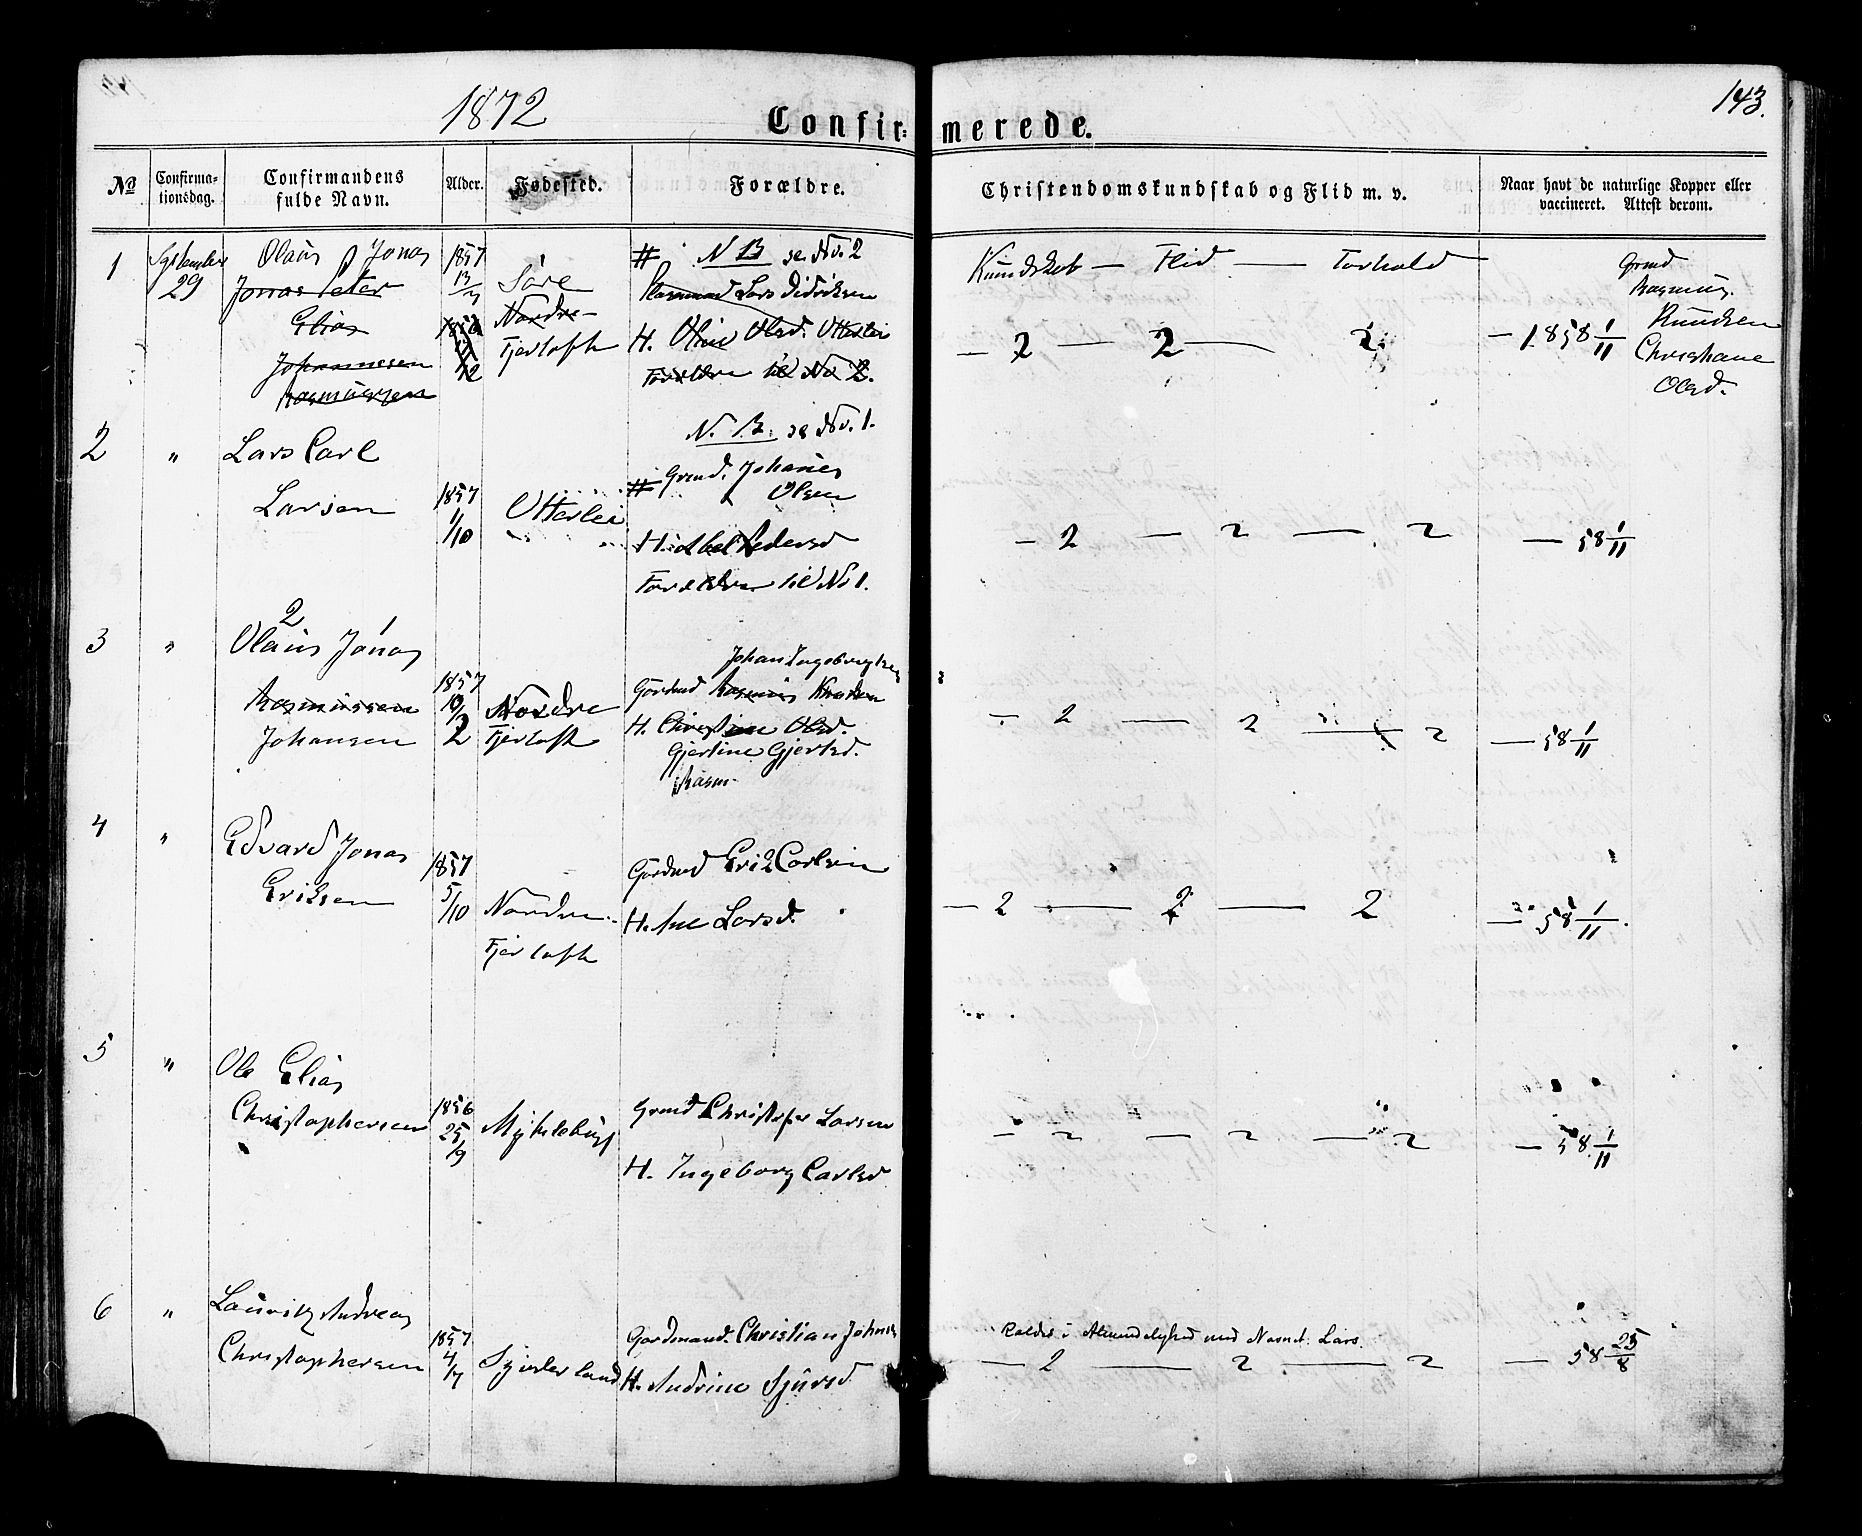 1872
143.
Confir- merede.
No
Confirma-
tionsdag.
Confirmandens
fulde Navn.
Alder.
Fødested.
Forældre.
Christendomskundskab og Flid m. v.
Naar havt de naturlige Kopper eller
vaccineret. Attest derom.
1
September
29
Olaus Jonas
Jonas Peter
Elias
Johannesen
Rasmussen
1857
Søre
Nordre
Fjørtoft
# N B se No. 2
Rasmus Lars Didriksen
H. Oline Olsd. Otterlei
Forældre til No 2.
Kundskab — Flid — Forhold
— 2 — 2 — 2
— 1858 1/11
Gmd
Rasmus
Knudsen
Christiane
Olsd.
2
"
Lars Carl
Larsen
1857
1/10
Otterlei
N. B. se No. 1.
# Grmd. Johannes
Olsen
H. Abel Pedersd
Forældre til No 1.
— 2 — 2 — 2
— 58 1/11
3
"
2 1
Olaus Jonas
Rasmussen
Johansen
1857
Nordre
Fjørtoft
Johan Ingebrigtsen
Gordmd Rasmus Knudsen
H. Christine Olsd.
Gjertine Gjertsd.
Rasm.
— 2 — 2 — 2
— 58 1/11
4
"
Edvard Jonas
Eriksen
1857
5/10
Nordre
Fjørtoft
Gordmd Erik Carlsen
H. Ane Larsd.
— 2 — 2 — 2
— 58 1/11.
5
"
Ole Elias
Christophersen
1856
25/9
Myklebust
Grmd Christofer Larsen
H. Ingeborg Carlsd
— 2 — 2 — 2
— 58 1/11
6
"
Lauritz Andreas
Christophersen
1857
4/7
Gordmand. Christian Johns
H. Andrine Sjursd
Kaldes i Almindelighed med Navnet Lars.
— 2 — 2 — 2
— 58 25/8